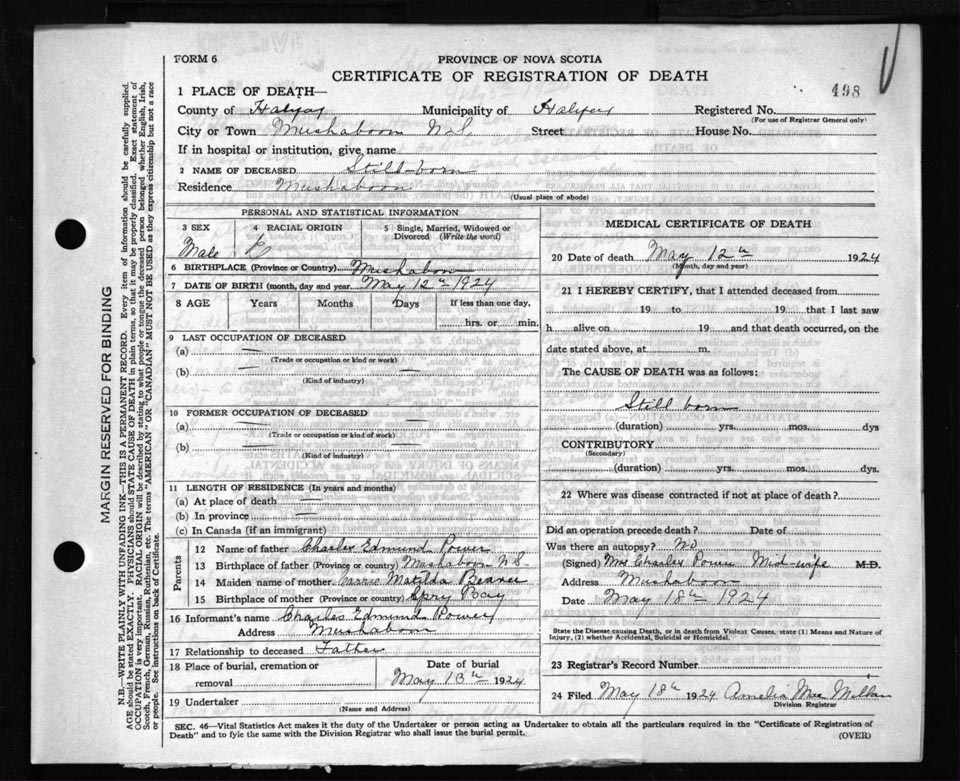 FORM 6
PROVINCE OF NOVA SCOTIA
CERTIFICATE OF REGISTRATION OF DEATH
498
1 PLACE OF DEATH—
County of Halifax Municipality of Halifax Registered No.
(For use of Registrar General only)
City or Town Mushaboom N.S. Street House No.
If in hospital or institution, give name
2 NAME OF DECEASED Still-born
Residence Mushaboom
(Usual place of abode)
PERSONAL AND STATISTICAL INFORMATION
3 SEX 4 RACIAL ORIGIN 5 Single, Married, Widowed or Divorced (Write the word)
Male E
6 BIRTHPLACE (Province or Country) Mushaboom
7 DATE OF BIRTH (month, day and year May 12th 1924
8 AGE Years Months Days If less than one day,
hrs. or min.
9 LAST OCCUPATION OF DECEASED
(a) —
(Trade or occupation or kind or work)
(b) —
(Kind of industry)
10 FORMER OCCUPATION OF DECEASED
(a) —
(Trade or occupation or kind of work)
(b) —
(Kind of industry)
11 LENGTH OF RESIDENCE (In years and months)
(a) At place of death —
(b) In province —
(c) In Canada (if an immigrant)
Parents
12 Name of father Charles Edmund Power
13 Birthplace of father (Province or country) Mushaboom N S
14 Maiden name of mother Matilda
15 Birthplace of mother (Province or country) Spry Bay
16 Informant's name Charles Edmund Power
Address Mushaboom
17 Relationship to deceased Father
18 Place of burial, cremation or removal Date of burial
May 13th 1924
19 Undertaker
(Name and Address)
MEDICAL CERTIFICATE OF DEATH
20 Date of death May 12th 1924
(Month, day and year)
21 I HEREBY CERTIFY, that I attended deceased from
19 to 19 that I last saw
h alive on 19 and that death occurred, on the
date stated above, at m.
The CAUSE OF DEATH was as follows:
Still born
(duration) yrs. mos. dys
CONTRIBUTORY
(Secondary)
(duration) yrs. mos. dys.
22 Where was disease contracted if not at place of death?
Did an operation precede death? Date of
Was there an autopsy? No
(Signed) Mrs Charles Power Mid-wife M.D.
Address Mushaboom
Date May 18th 1924
State the Disease causing Death, or in death from Violent Causes, state (1) Means and Nature of
Injury, (2) whether Accidental, Suicidal or Homicidal.
23 Registrar's Record Number
24 Filed May 18th 1924 Amelia Mac Millan
Division Registrar
SEC. 46—Vital Statistics Act makes it the duty of the Undertaker or person acting as Undertaker to obtain all the particulars required in the "Certificate of Registration of
Death" and to fyle the same with the Division Registrar who shall issue the burial permit.
(OVER)
MARGIN RESERVED FOR BINDING
N.B.—WRITE PLAINLY WITH UNFADING INK—THIS IS A PERMANENT RECORD. Every item of information should be carefully supplied.
AGE should be stated EXACTLY. PHYSICIANS should STATE CAUSE OF DEATH in plain terms, so that it may be properly classified. Exact statement of
OCCUPATION is very important. RACIAL ORIGIN will be described by stating to what people or tongue the deceased person belonged whether English, Irish,
Scotch, French, German, Russian, Ruthenian, etc. The terms "AMERICAN" OR "CANADIAN" MUST NOT BE USED as they express citizenship but not a race
or people. See instructions on back of Certificate.